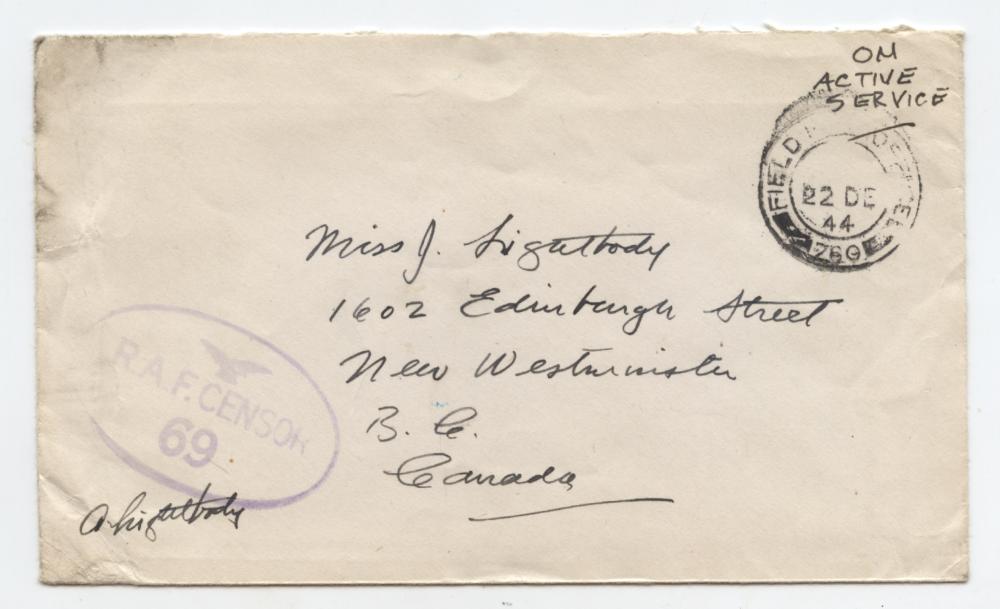 ON
ACTIVE
SERVICE
FIELD
22 DE
44
Miss J. Lightbody
1602 Edinburgh Street
New Westminster
B. C.
Canada
R.A.F. CENSOR
69
A. Lightbody